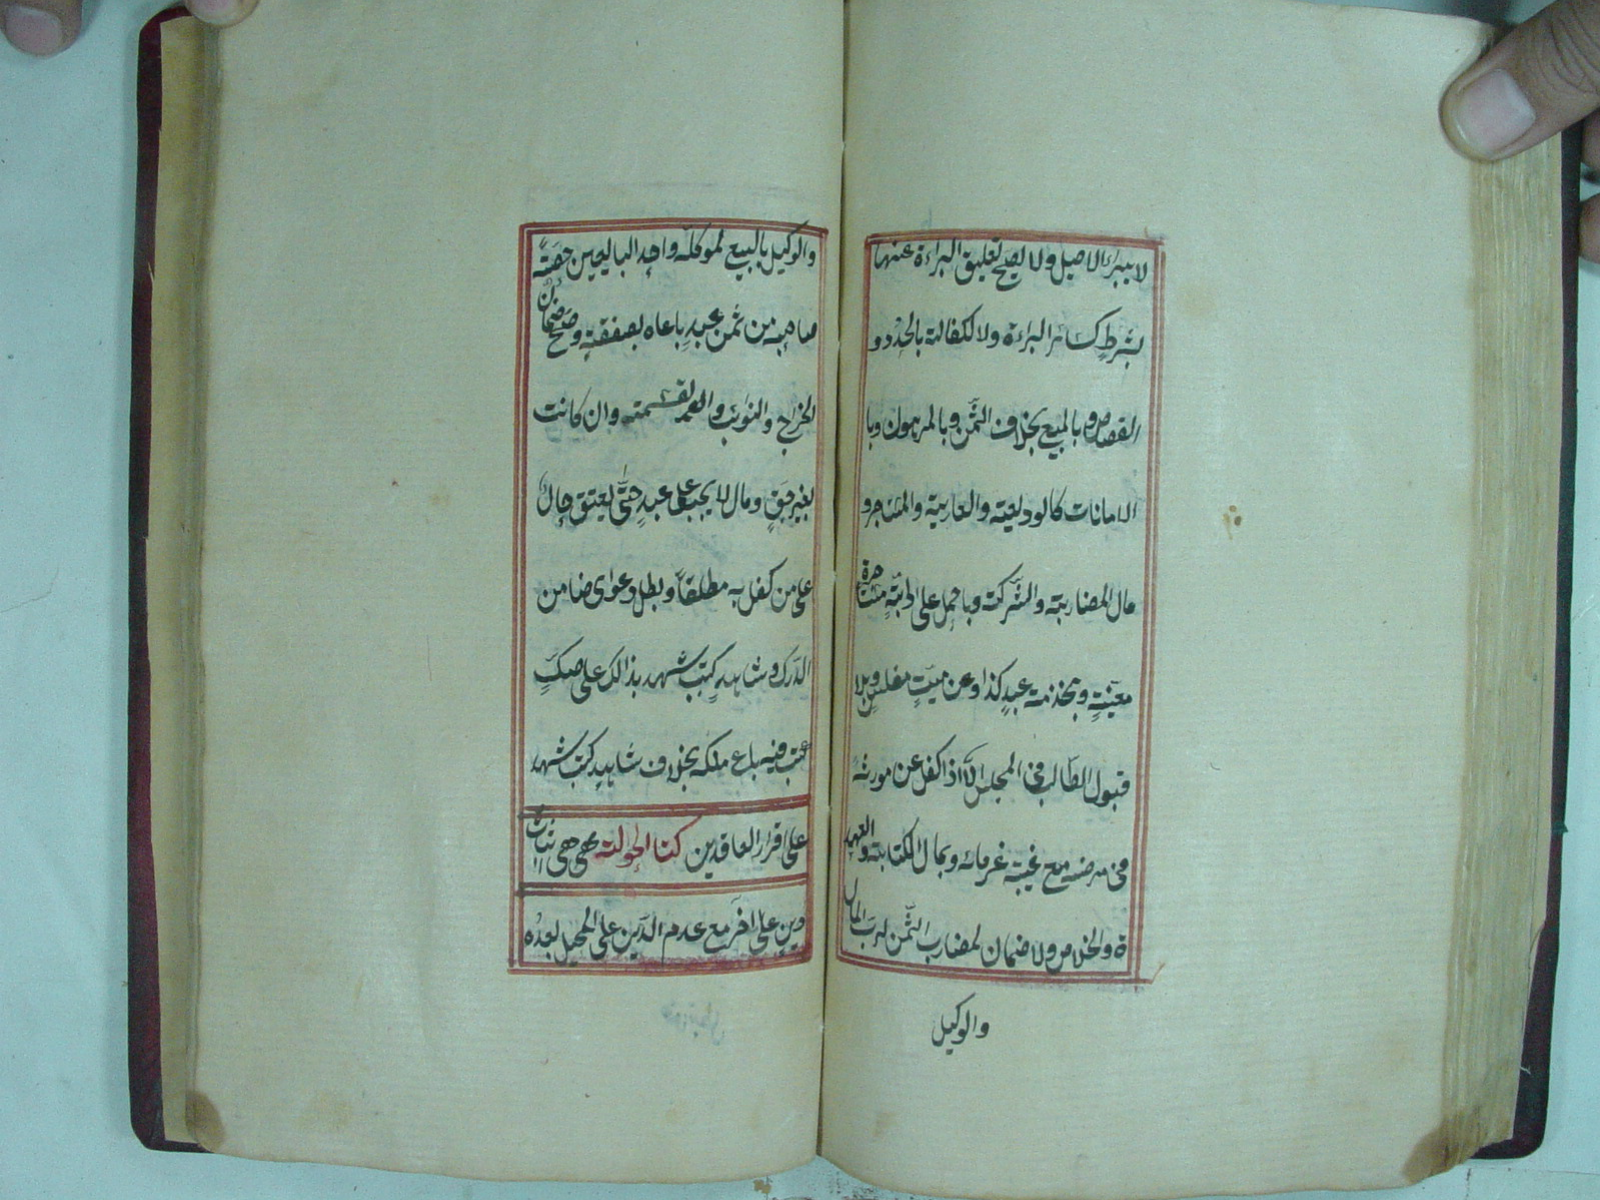 لا يبراء الاصيل ولا يصح تعليق البراءة عنها
بشرط كسائر البراءة ولا لكفالة بالحدود و
القصاص و بالمبيع بخلاف الثمن وبالمرهون وبا
الامانات كالوديعة والعارية والمستاجر و
مال المضاربة والشركة وبالحمل على دابة مستاجرة
معينة وبخدمة عبد كذا وعن ميت مفلس وبلا
قبول الطالب فى المجلس الا اذا كفل عن مورثه
فى مرضه مع غيبة غرمائه وبمال الكتابة والعهد
ة والخلاص ولا ضمان لمضارب الثمن لرب المال
والوكيل
والوكيل بالبيع لموكله واحد البايعين حصة
صاحبه من ثمن عبد باعاه بصفقة وصح ضمان
الخراج والنوائب والقسمة وان كانت
بغير حق ومال لا يجب على عبد حتى يعتق حال
على من كفل به مطلقا وبطل دعواى ضامن
الدرك وشاهد كتب شهد بذالك على صك
كتب فيه باع ملكه بخلاف شاهد كتب شهد
على اقرار العاقدين كتاب الحوالة هى اثبات
دين على اخر مع عدم الدين على المحيل بعده